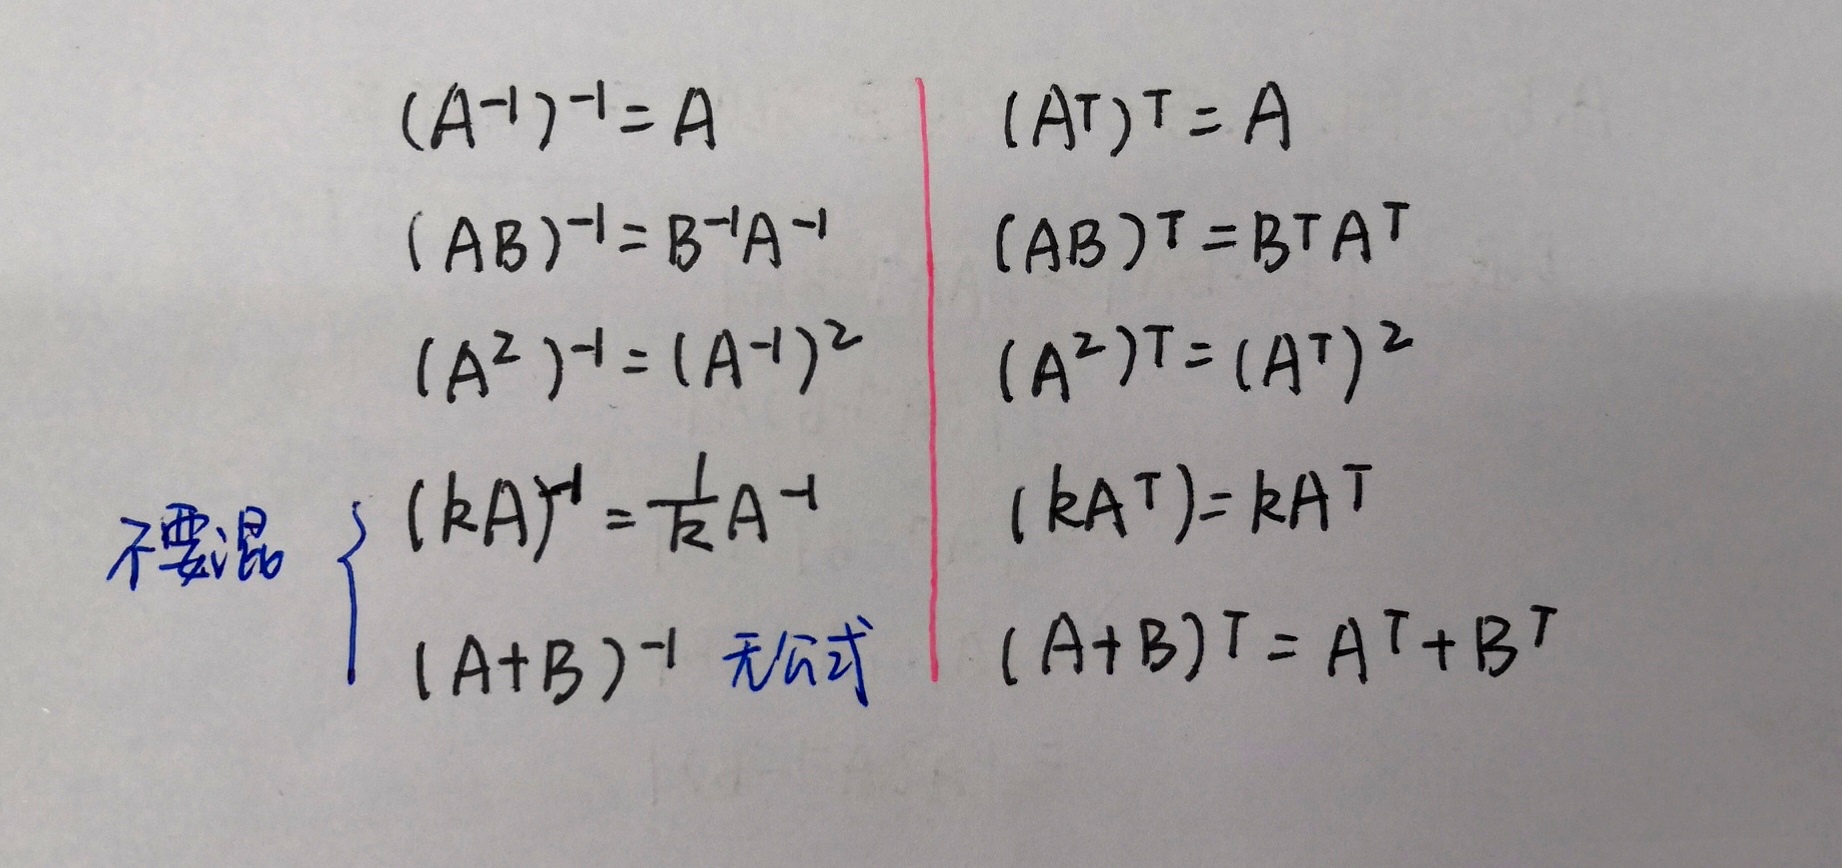 (A⁻¹)⁻¹ = A
(AB)⁻¹ = B⁻¹A⁻¹
(A²)⁻¹ = (A⁻¹)²
不要混
(kA)⁻¹ = 1/k A⁻¹
(A+B)⁻¹ 无公式
(Aᵀ)ᵀ = A
(AB)ᵀ = BᵀAᵀ
(A²)ᵀ = (Aᵀ)²
(kAᵀ) = kAᵀ
(A+B)ᵀ = Aᵀ+Bᵀ